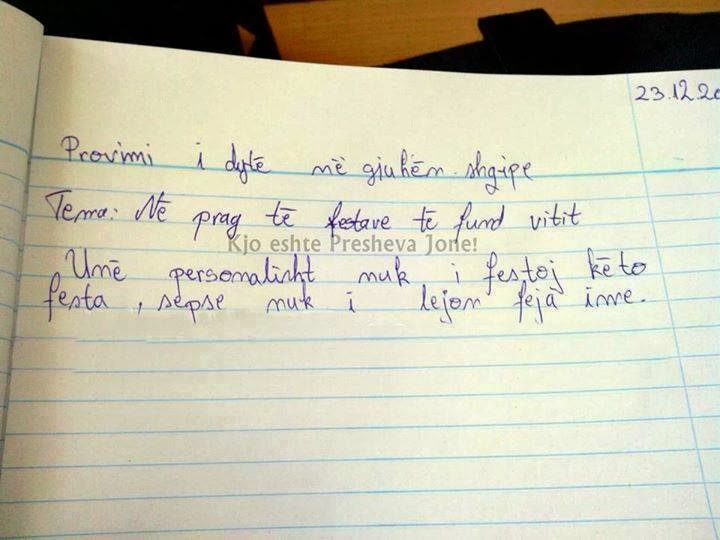 23.12.20
Provimi i dytë në gjuhën shqipe
Tema: Në prag të festave të fund vitit
Kjo eshte Presheva Jone!
Unë personalisht nuk i festoj këto
festa, sepse nuk i lejon feja ime.